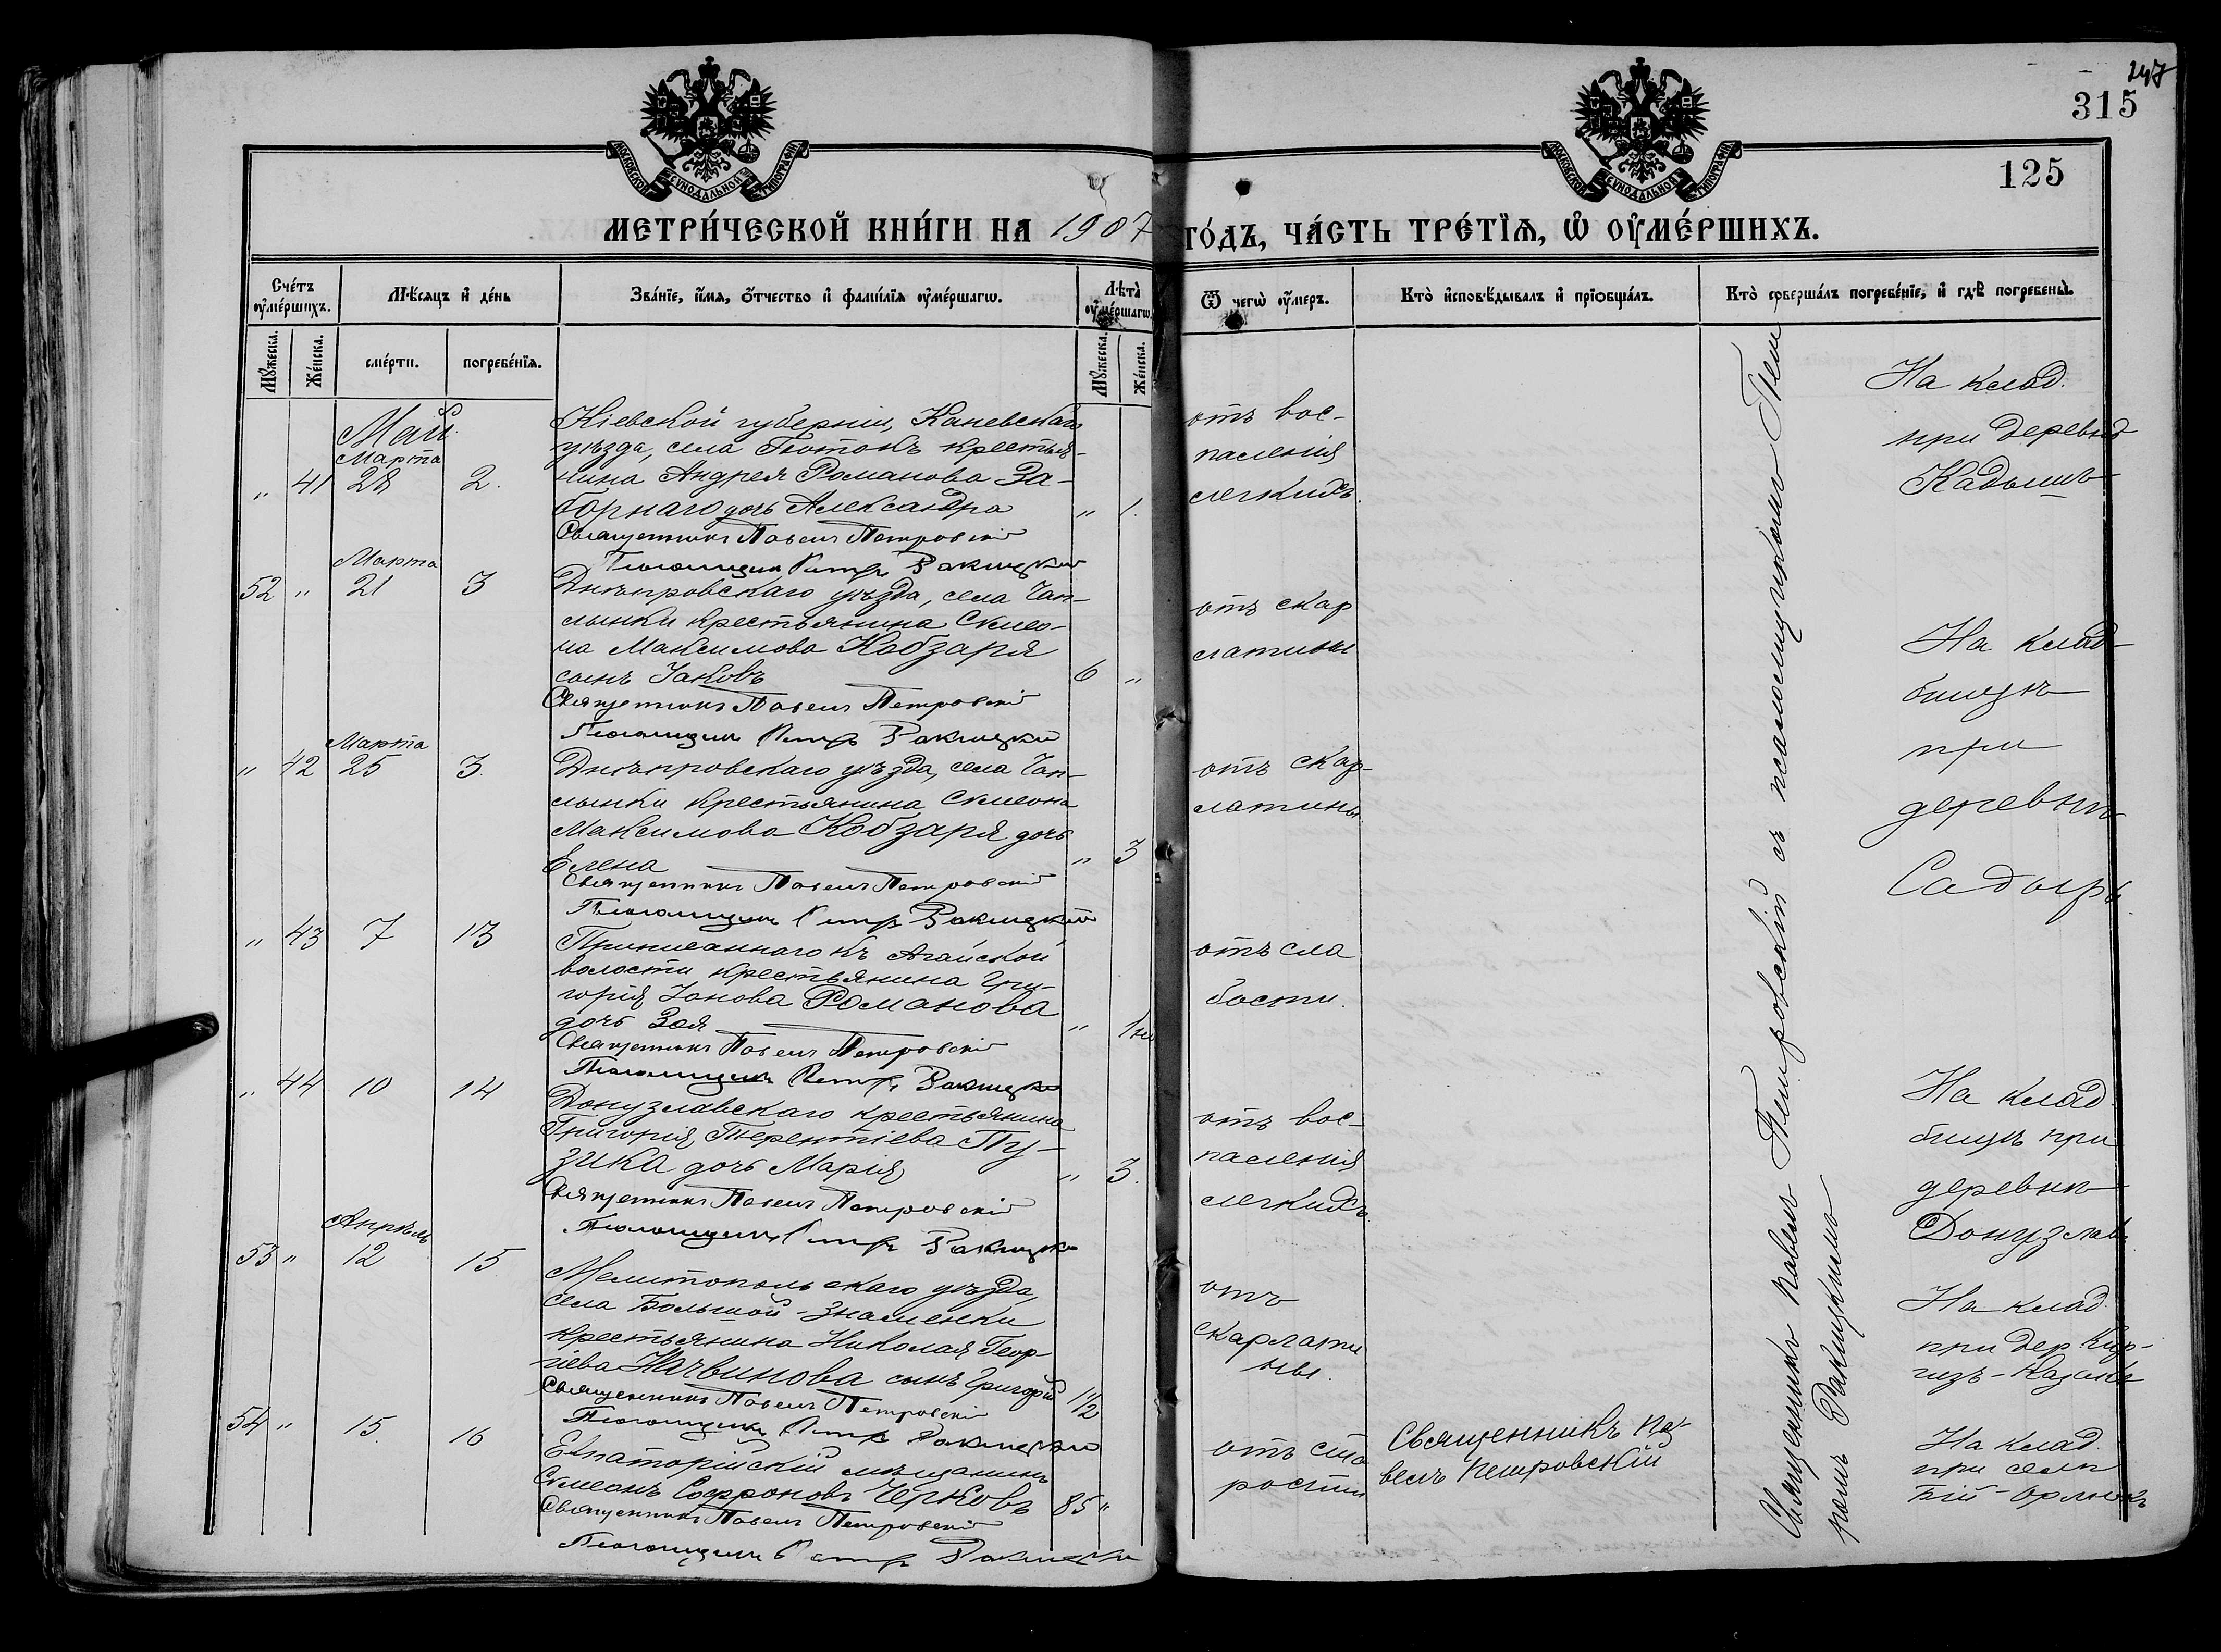 247
315
125
МОСКОВСКОЙ СѴНОДАЛЬНОЙ ТИПОГРАФІИ
МОСКОВСКОЙ СѴНОДАЛЬНОЙ ТИПОГРАФІИ
МЕТРИ́ЧЕСКОЙ КНИ́ГИ НА 1907 ГО́ДЪ, ЧА́СТЬ ТРЕ́ТІѦ, Ѡ҆ ОУ҆МЕ́РШИХЪ.
Сче́тъ оу҆ме́ршихъ.
Мꙋ́жеска.
Же́нска.
Мѣ́сѧцъ и҆ де́нь
сме́рти.
погребе́нїѧ.
Зва́нїе, и҆́мѧ, ѻ҆́тчество и҆ фами́лїѧ оу҆ме́ршагѡ.
Лѣ́та̀ оу҆ме́ршагѡ.
Мꙋ́жеска.
Же́нска.
Ѿ чегѡ̀ оу҆́меръ.
Кто̀ и҆сповѣ́дывалъ и҆ прїѡбща́лъ.
Кто̀ соверша́лъ погребе́нїе, и҆ гдѣ̀ погребены̀.
Май
Марта
" 41 28 2.
Кіевской губерніи, Каневскаго
уѣзда, села Потокъ крестья-
нина Андрея Романова За-
борнаго дочь Александра " 1.
Священникъ Павелъ Петровскій
Псаломщикъ Петръ Ракицкій
отъ вос-
паленія
легкихъ.
На клад.
при деревнѣ
Кадышъ
Марта
52 " 21 3
Днѣпровскаго уѣзда, села Чап-
лынки крестьянина Симео-
на Максимова Кобзаря
сынъ Іаковъ 6 "
Священникъ Павелъ Петровскій
Псаломщикъ Петръ Ракицкій
отъ скар
латины
На клад-
бищѣ
при
деревнѣ
Садыръ
Марта
" 42 25 3.
Днѣпровскаго уѣзда, села Чап-
лынки крестьянина Симеона
Максимова Кобзаря дочь
Елена " 3
Священникъ Павелъ Петровскій
Псаломщикъ Петръ Ракицкій
отъ скар-
латины
" 43 7 13
Приписаннаго къ Агайской
волости крестьянина Гри-
горія Іонова Романова
дочь Зоя "
Священникъ Павелъ Петровскій
Псаломщикъ Петръ Ракицкій
отъ сла
бости.
" 44 10 14
Донузлавскаго крестьянина
Григорія Терентіева Пу-
зика дочь Марія " 3.
Священникъ Павелъ Петровскій
Псаломщикъ Петръ Ракицкій
отъ вос-
паленія
легкихъ.
На клад
бищѣ при
деревнѣ
Донузлавъ
Апрѣль
53 " 12 15
Мелитопольскаго уѣзда,
села Большой-Знаменки
крестьянина Николая Геор-
гіева сынъ Григорій 1 1/2
Священникъ Павелъ Петровскій
Псаломщикъ Петръ Ракицкій
отъ
скарлати
ны.
На клад.
при дер. Кир-
гизъ-Казакъ
54 " 15. 16
Евпаторійскій мѣщанинъ
Симеонъ Софроновъ Черковъ 85 "
Священникъ Павелъ Петровскій
Псаломщикъ Петръ Ракицкій
отъ ста
рости
Священникъ Па-
велъ Петровскій
На клад.
при селѣ
Бій-Орлюкъ
Священникъ Павелъ Петровскій съ псаломщикомъ Пет-
ромъ Ракицкимъ